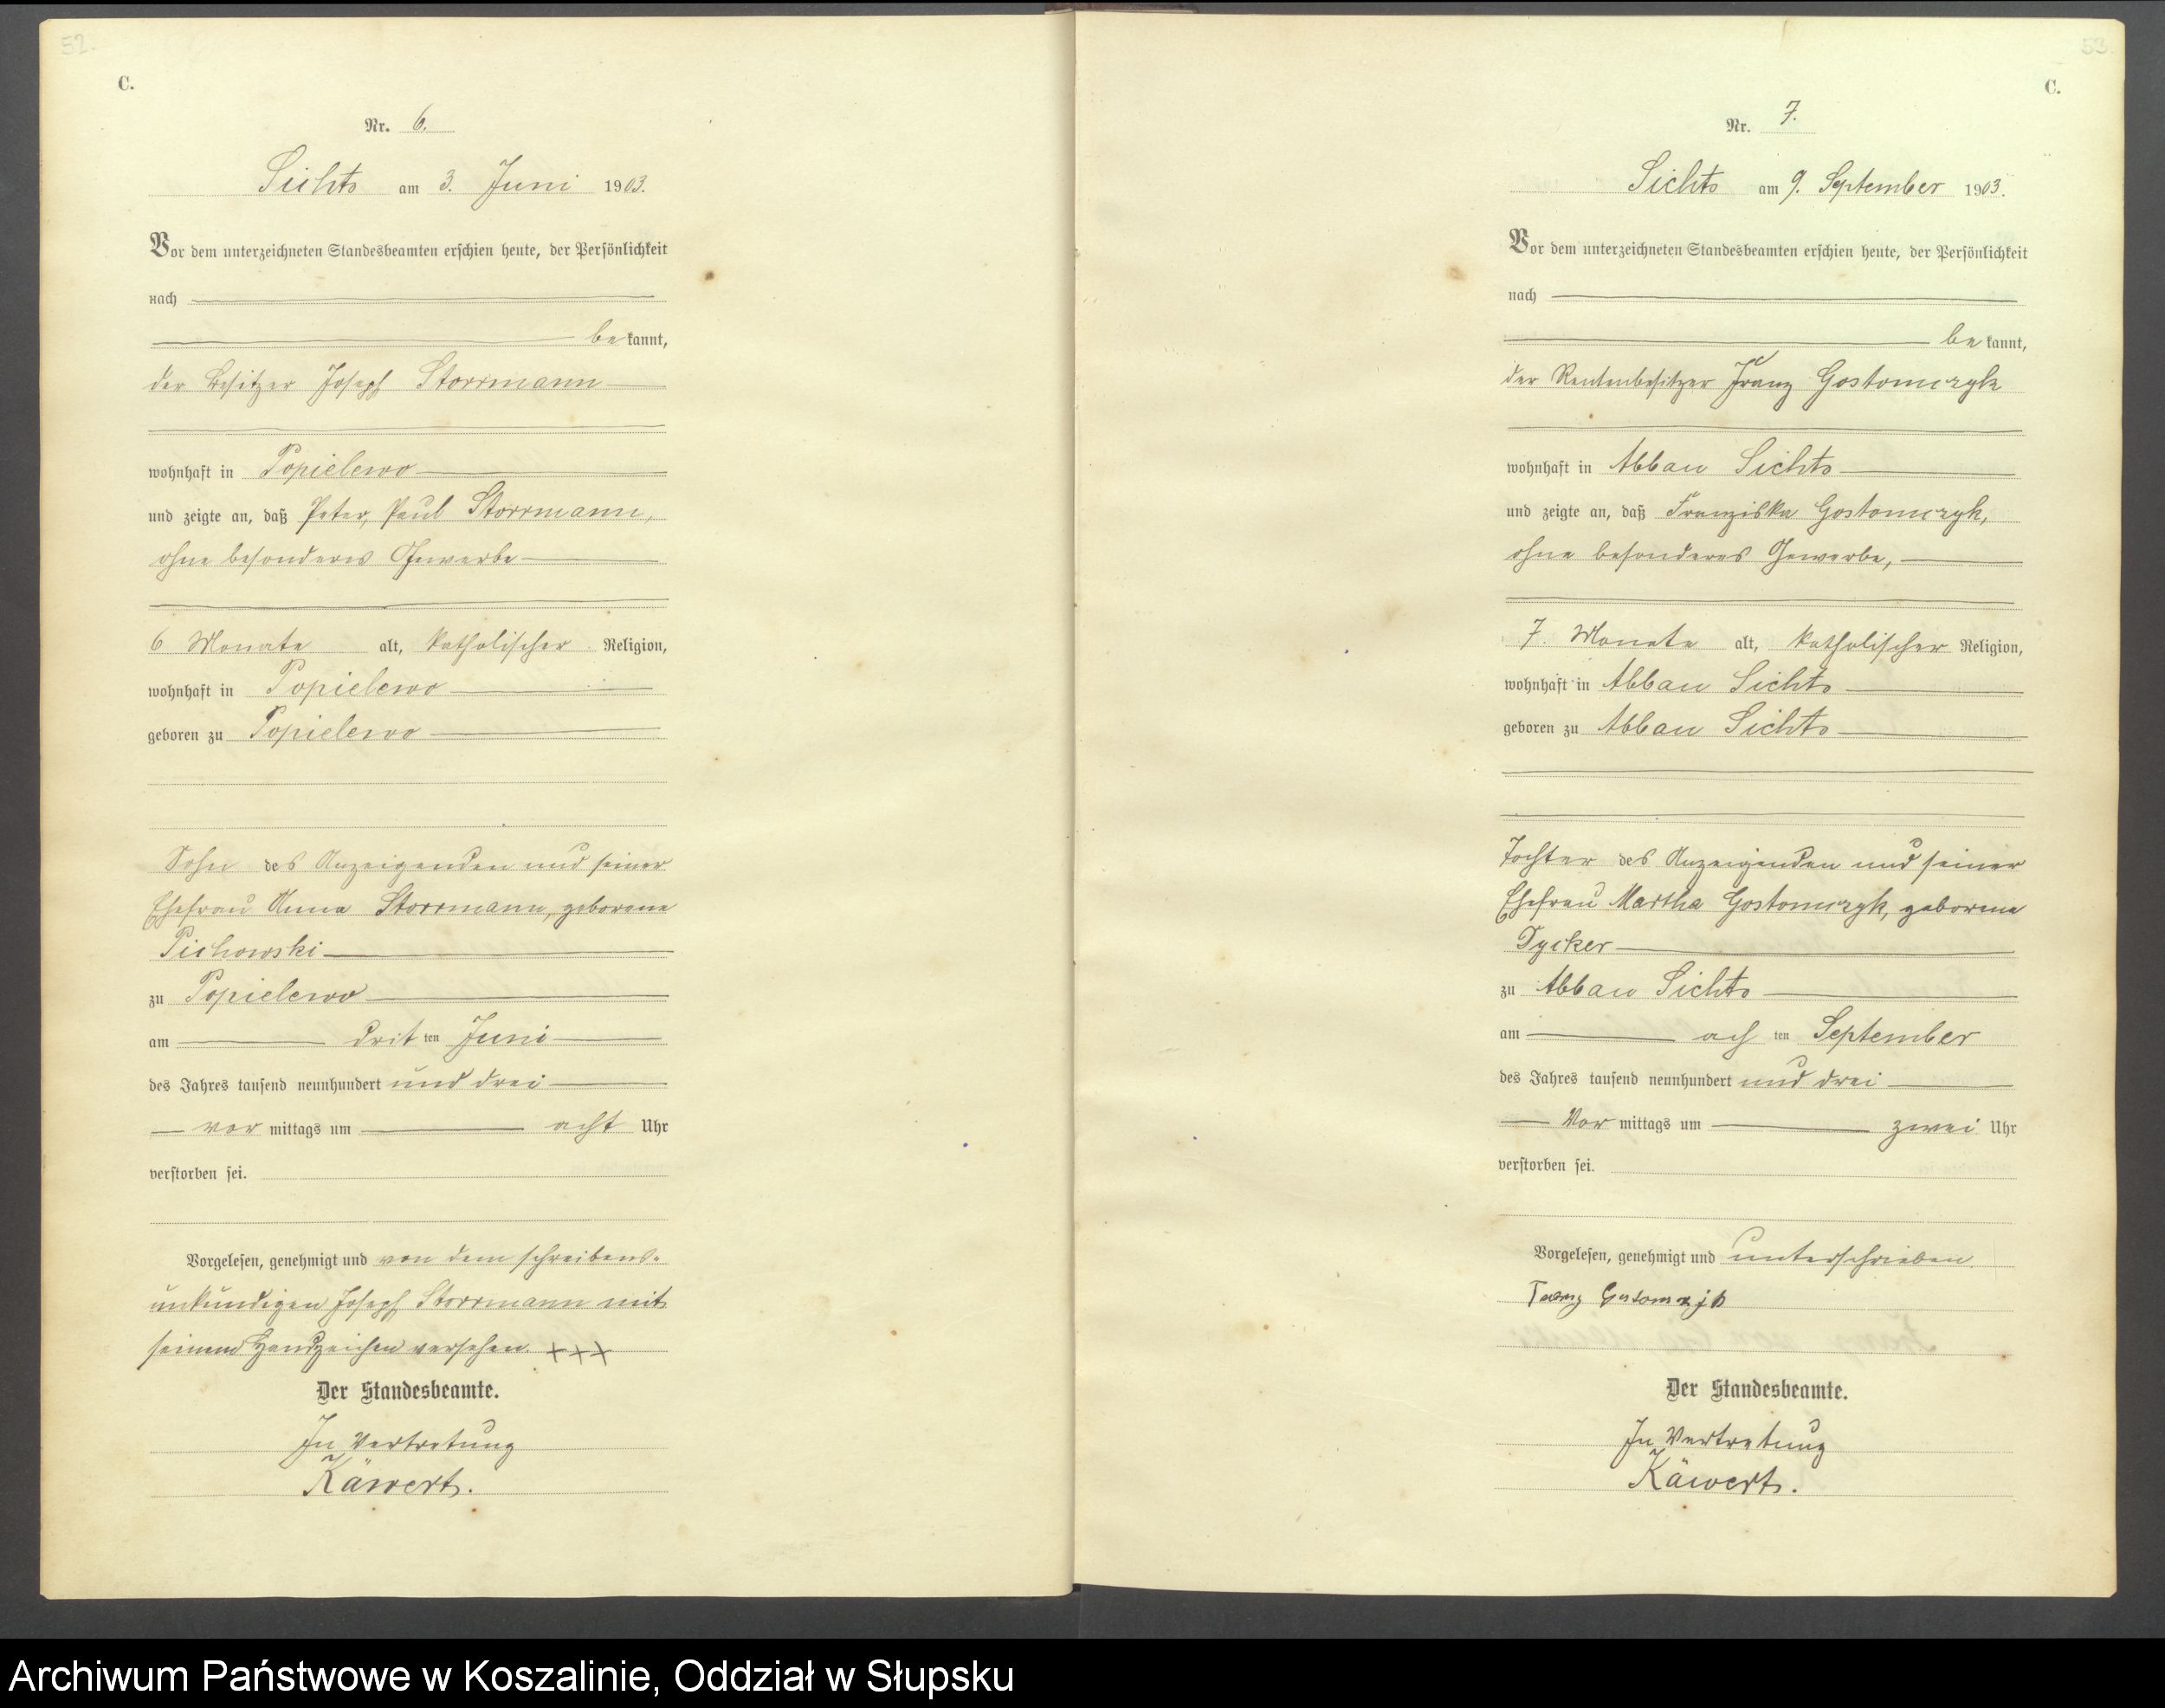 52.
C.
Nr. 6.
Sichts am 3. Juni 1903.
Vor dem unterzeichneten Standesbeamten erschien heute, der Persönlichkeit
nach
bekannt,
der Besitzer Joseph Storrmann
wohnhaft in Popielewo
und zeigte an, daß Peter, Paul Storrmann,
ohne besonderes Gewerbe
6 Monate alt, katholischer Religion,
wohnhaft in Popielewo
geboren zu Popielewo
Sohn des Anzeigenden und seiner
Ehefrau Anna Storrmann, geborene
Pichowski
zu Popielewo
am dritten Juni
des Jahres tausend neunhundert und drei
vormittags um acht Uhr
verstorben sei.
Vorgelesen, genehmigt und von dem schreibens-
unkundigen Joseph Storrmann mit
seinem Handzeichen versehen. +++
Der Standesbeamte.
In Vertretung
Käwert.
53.
C.
Nr. 7.
Sichts am 9. September 1903.
Vor dem unterzeichneten Standesbeamten erschien heute, der Persönlichkeit
nach
bekannt,
der Rentenbesitzer Franz Gostomczyk
wohnhaft in Abbau Sichts
und zeigte an, daß Franziska Gostomczyk,
ohne besonderes Gewerbe,
7 Monate alt, katholischer Religion,
wohnhaft in Abbau Sichts
geboren zu Abbau Sichts
Tochter des Anzeigenden und seiner
Ehefrau Martha Gostomczyk, geborene
Tycker
zu Abbau Sichts
am achten September
des Jahres tausend neunhundert und drei
Vormittags um zwei Uhr
verstorben sei.
Vorgelesen, genehmigt und unterschrieben
Franz
Der Standesbeamte.
In Vertretung
Käwert.
Archiwum Państwowe w Koszalinie, Oddział w Słupsku